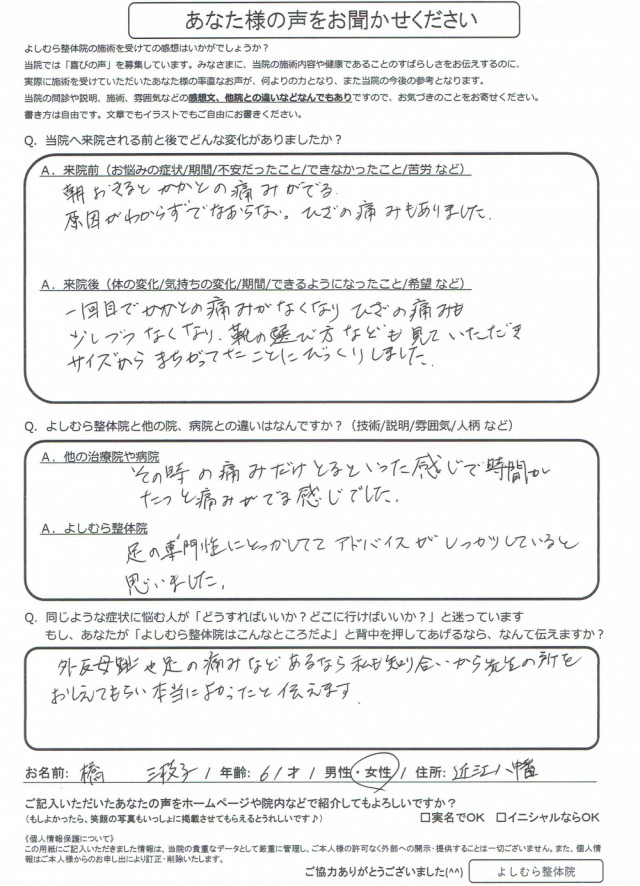 あなた様の声をお聞かせください
よしむら整体院の施術を受けての感想はいかがでしょうか？
当院では「喜びの声」を募集しています。みなさまに、当院の施術内容や健康であることのすばらしさをお伝えするのに、
実際に施術を受けていただいたあなた様の率直なお声が、何よりの力となり、また当院の今後の参考となります。
当院の問診や説明、施術、雰囲気などの感想文、他院との違いなどなんでもありですので、お気づきのことをお寄せください。
書き方は自由です。文章でもイラストでもご自由にお書きください。
Q. 当院へ来院される前と後でどんな変化がありましたか？
A. 来院前（お悩みの症状/期間/不安だったこと/できなかったこと/苦労 など）
朝おきるとかかとの痛みがでる
原因がわからずでなおらない。ひざの痛みもありました。
A. 来院後（体の変化/気持ちの変化/期間/できるようになったこと/希望 など）
一回目でかかとの痛みがなくなりひざの痛みも
少しづつなくなり、靴の選び方なども見ていただき
サイズからまちがってたことにびっくりしました。
Q. よしむら整体院と他の院、病院との違いはなんですか？（技術/説明/雰囲気/人柄 など）
A. 他の治療院や病院
その時の痛みだけとるといった感じで時間が
たつと痛みがでる感じでした。
A. よしむら整体院
足の専門性にとっかしてて アドバイスがしっかりしていると
思いました。
Q. 同じような症状に悩む人が「どうすればいいか？どこに行けばいいか？」と迷っています
もし、あなたが「よしむら整体院はこんなところだよ」と背中を押してあげるなら、なんて伝えますか？
外反母趾や足の痛みなどあるなら私も知り合いから先生の所を
おしえてもらい本当によかったと伝えます
お名前: 橋 三枝子 / 年齢: 61才 / 男性・女性 / 住所: 近江八幡
ご記入いただいたあなたの声をホームページや院内などで紹介してもよろしいですか？
(もしよかったら、笑顔の写真もいっしょに掲載させてもらえるとうれしいです♪) □実名でOK □イニシャルならOK
《個人情報保護について》
この用紙にご記入いただきました情報は、当院の貴重なデータとして厳重に管理し、ご本人様の許可なく外部への開示・提供することは一切ございません。また、個人情
報はご本人様からのお申し出により訂正・削除いたします。
ご協力ありがとうございました(^^) よしむら整体院